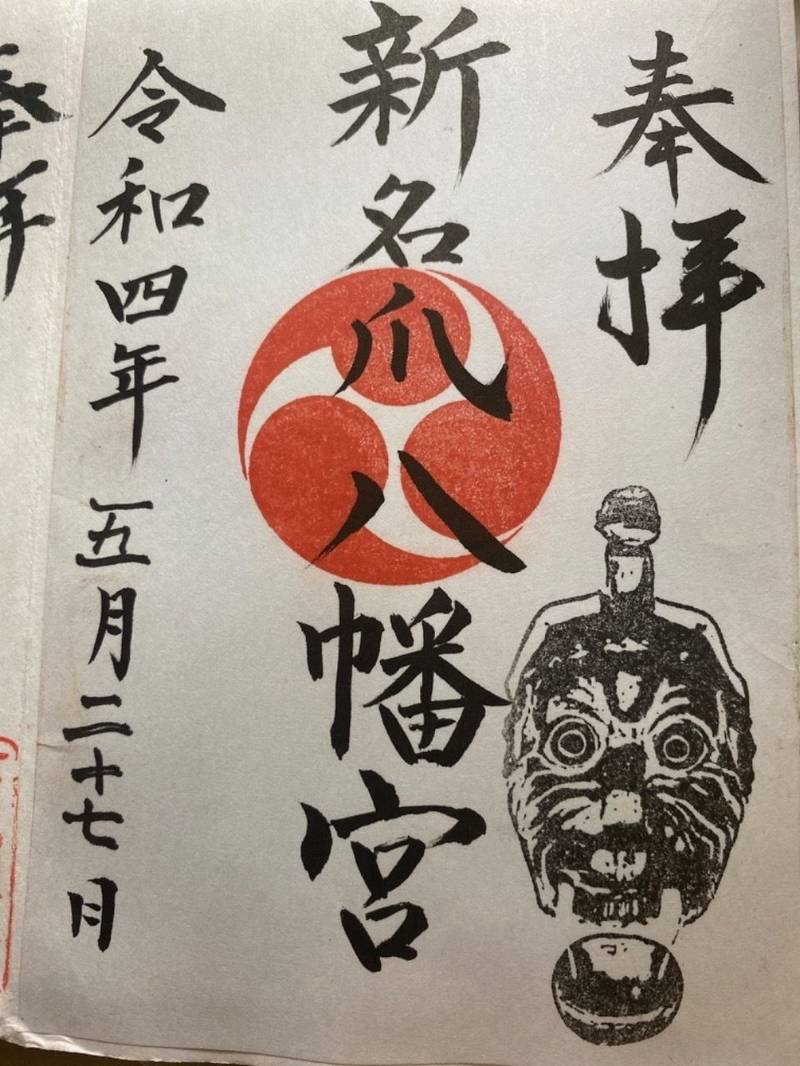 奉拝
新名爪八幡宮
令和四年五月二十七日
奉拝